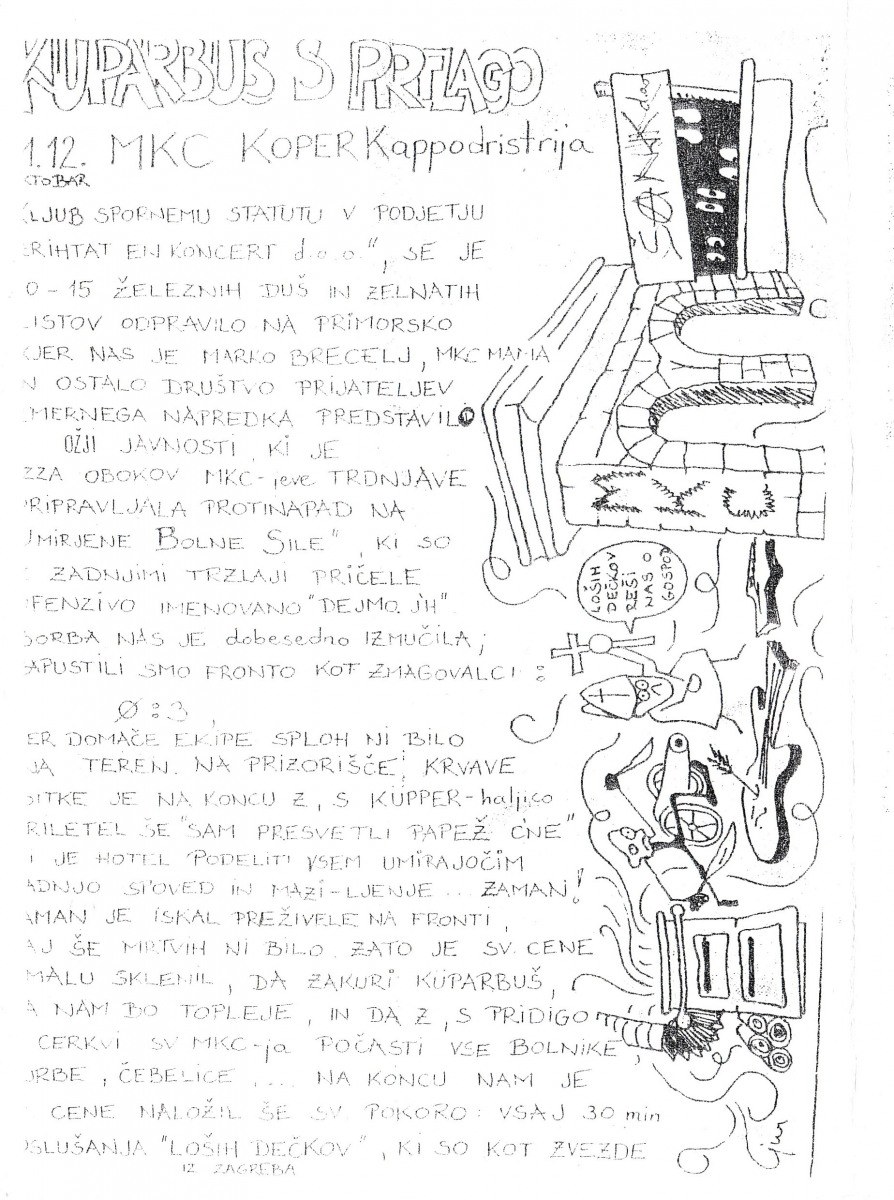 KUPARBUS S PRTLAGO
1.12. MKC KOPER Kappodristrija
KTOBAR
KLJUB SPORNEMU STATUTU V PODJETJU
RIHTAT EN KONCERT d.o.o.", SE JE
0-15 ŽELEZNIH DUŠ IN ZELNATIH
LISTOV ODPRAVILO NA PRIMORSKO
KJER NAS JE MARKO BRECELJ, MKC MAMA
N OSTALO DRUŠTVO PRIJATELJEV
MERNEGA NAPREDKA PREDSTAVILO
OŽJI JAVNOSTI, KI JE
ZZA OBOKOV MKC-jeve TRDNJAVE
PRIPRAVLJALA PROTINAPAD NA
UMIRJENE BOLNE SILE", KI SO
ZADNJIMI TRZLAJI PRIČELE
OFENZIVO IMENOVANO "DEJMO J'H".
BORBA NAS JE dobesedno IZMUČILA;
ZAPUSTILI SMO FRONTO KOT ZMAGOVALCI:
Ø:3,
ER DOMAČE EKIPE SPLOH NI BILO
NA TEREN. NA PRIZORIŠČE, KRVAVE
BITKE JE NA KONCU Z, S KÜPPER-haljico
PRILETEL ŠE "SAM PRESVETLI PAPEŽ C'NE"
I JE HOTEL PODELITI VSEM UMIRAJOČIM
ZADNJO SPOVED IN MAZI-LJENJE... ZAMAN!
ZAMAN JE ISKAL PREŽIVELE NA FRONTI,
AJ ŠE MRTVIH NI BILO. ZATO JE SV. CENE
MALU SKLENIL, DA ZAKURI KÜPARBUŠ,
A NAM BO TOPLEJE, IN DA Z, S PRIDIGO
CERKVI SV MKC-ja POČASTI VSE BOLNIKE,
URBE, ČEBELICE,... NA KONCU NAM JE
CENE NALOŽIL ŠE SV. POKORO: VSAJ 30 min
OSLUŠANJA "LOŠIH DEČKOV", KI SO KOT ZVEZDE
IZ ZAGREBA
ŠANK dao
MKC
LOŠIH
DEČKOV
REŠI
NAS O
GOSPOD